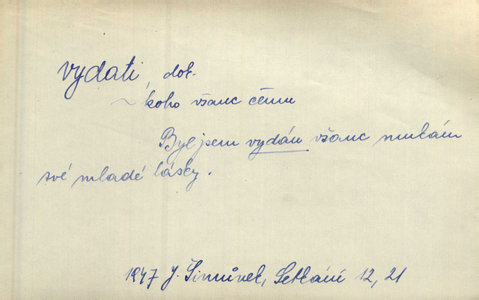 vydati, dok.
~ koho všanc čemu
Byl jsem vydán všanc mukám
své mladé lásky.
1947 J. Simůnek, Setkání 12, 21